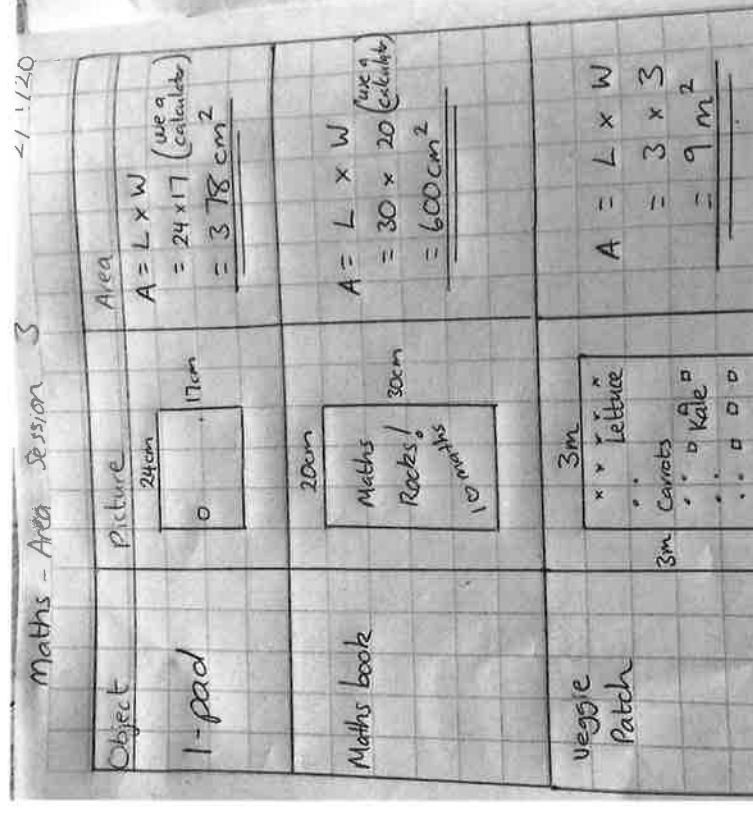 2/1/20
Maths - Area Session 3
Object Picture Area
I-pad
24cm
17cm
A = L x W
= 24 x 17 (use a calculator)
= 378 cm²
Maths book
20cm
30cm
Maths
Rocks!
I ♡ maths
A = L x W
= 30 x 20 (use a calculator)
= 600 cm²
Veggie
Patch
3m
3m
Lettuce
Carrots
Kale
A = L x W
= 3 x 3
= 9 m²